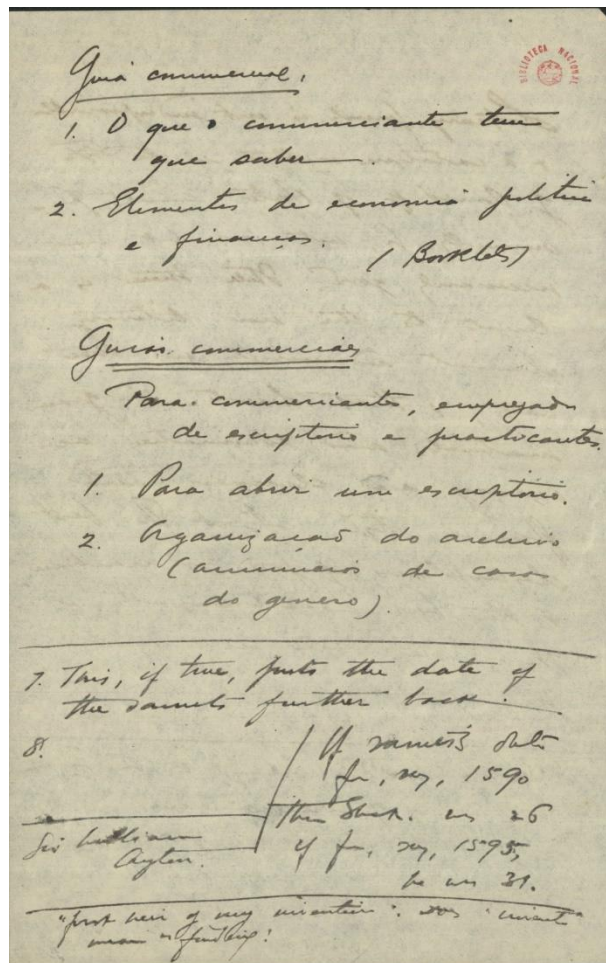 BIBLIOTECA NACIONAL
Guia commercial.
1. O que o commerciante tem
que saber.
2. Elementos de economia politica
e finanças.
(Booklets)
Guias commerciaes
Para commerciantes, empregados
de escriptorio e practicantes.
1. Para abrir um escriptorio.
2. Organização do archivo
(annuncios de casas
do genero).
7. This, if true, puts the date of
the sonnets further back.
8.
If sonnets date
fr, say, 1590
then Shak. was 26
if fr, say, 1595,
he was 31.
Sir William
Ayton.
"first heir of my invention". Does "invent"
mean "finding"?